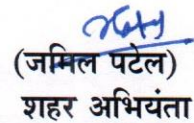 (जमिल पटेल)
शहर अभियंता